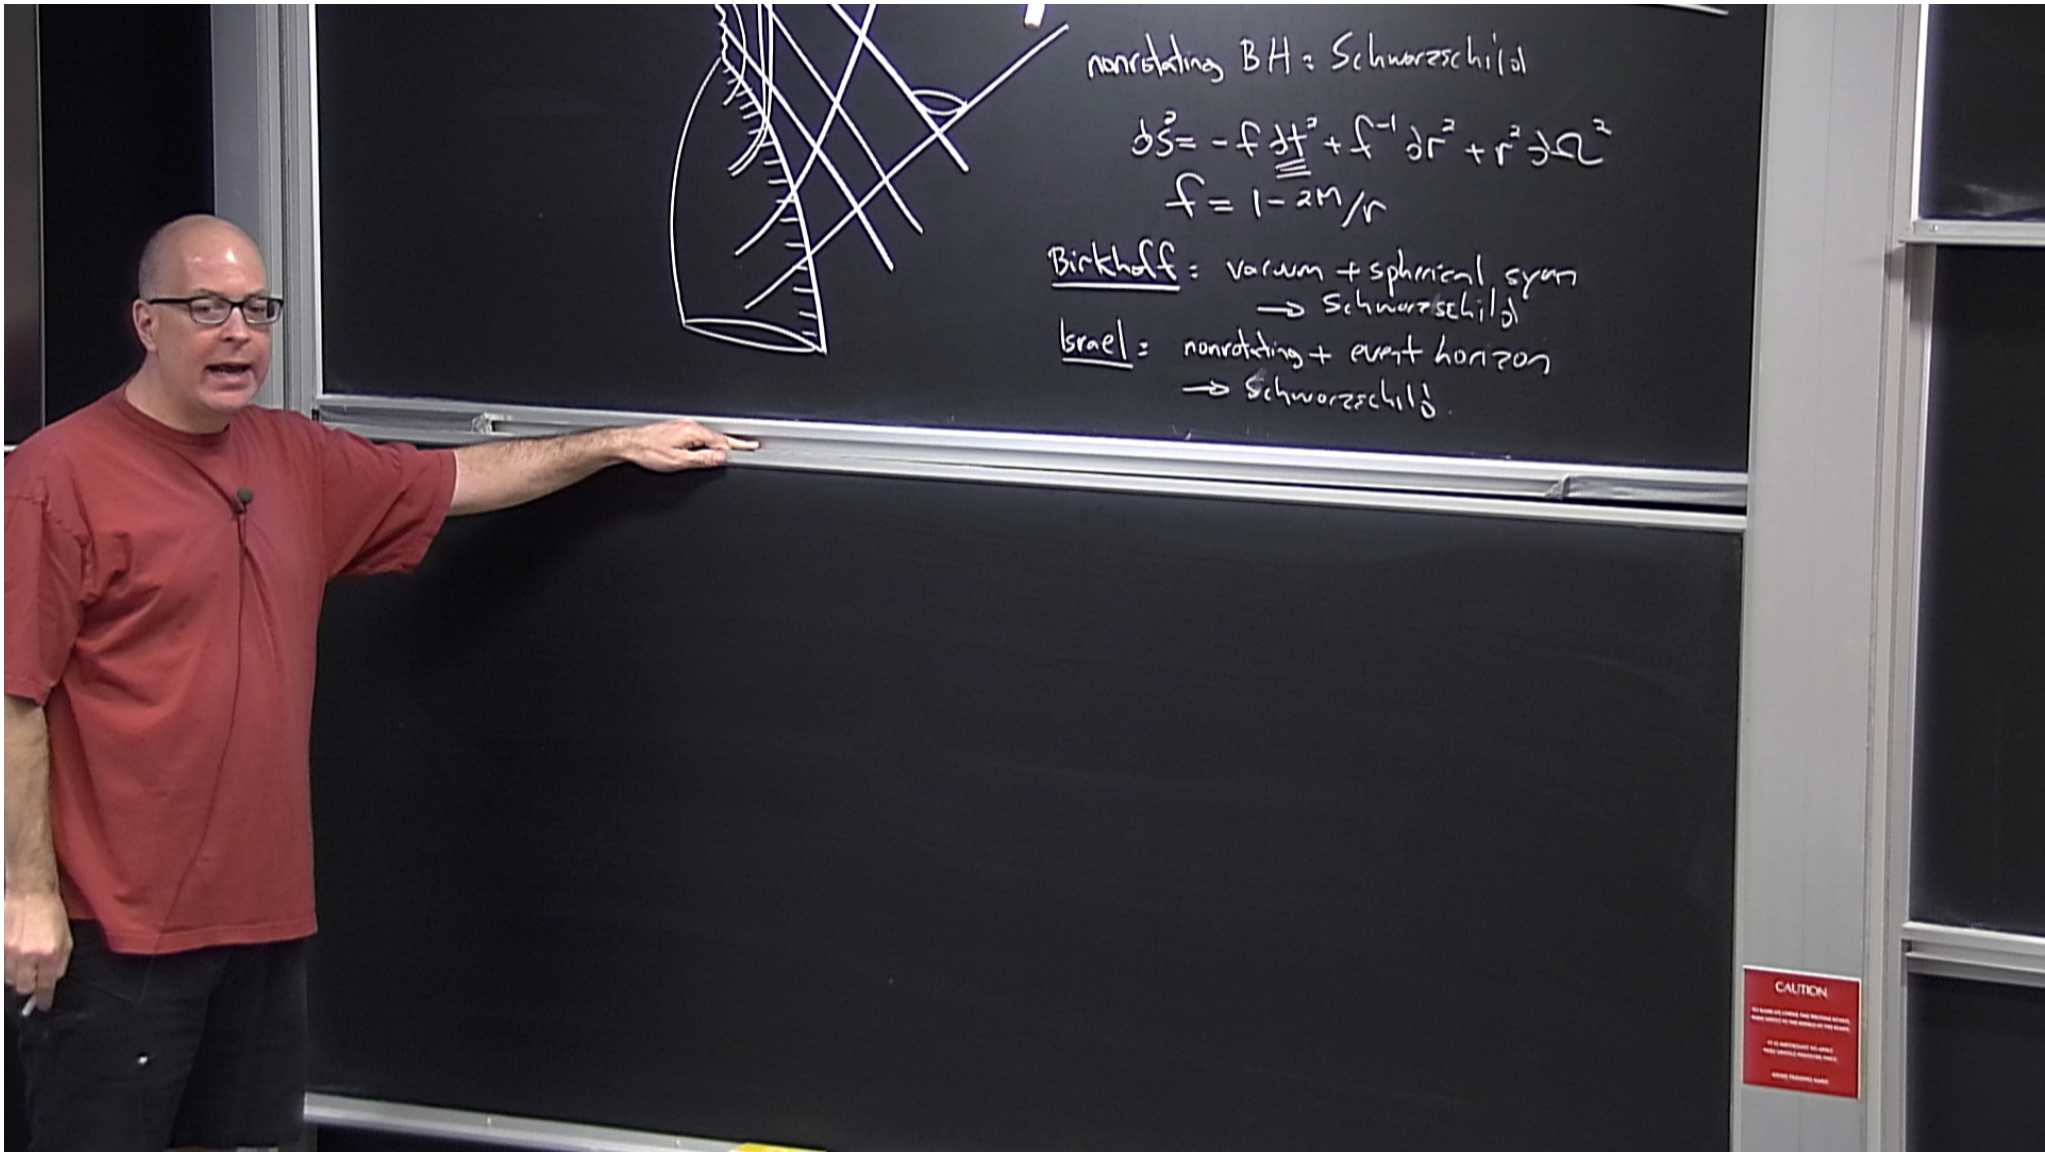 nonrotating BH : Schwarzschild
ds² = -f dt² + f⁻¹ dr² + r² dΩ²
f = 1 - 2M/r
Birkhoff : vacuum + spherical sym
→ Schwarzschild
Israel : nonrotating + event horizon
→ Schwarzschild.
CAUTION